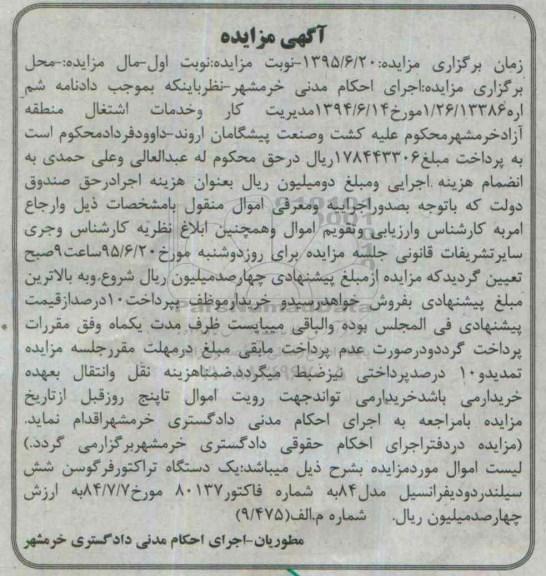 آگهی مزایده
زمان برگزاری مزایده:۱۳۹۵/۶/۲۰-نوبت مزایده:نوبت اول-مال مزایده:-محل
برگزاری مزایده:اجرای احکام مدنی خرمشهر-نظرباینکه بموجب دادنامه شم
اره۱/۲۶/۱۳۳۸۶مورخ۱۳۹۴/۶/۱۴مدیریت کار وخدمات اشتغال منطقه
آزادخرمشهرمحکوم علیه کشت وصنعت پیشگامان اروند-داوودفردادمحکوم است
به پرداخت مبلغ۱۷۸۴۴۳۳۰۶ریال درحق محکوم له عبدالعالی وعلی حمدی به
انضمام هزینه اجرایی ومبلغ دومیلیون ریال بعنوان هزینه اجرادرحق صندوق
دولت که باتوجه بصدوراجرائیه ومعرفی اموال منقول بامشخصات ذیل وارجاع
امربه کارشناس وارزیابی وتقویم اموال وهمچنین ابلاغ نظریه کارشناس وجری
سایرتشریفات قانونی جلسه مزایده برای روزدوشنبه مورخ۹۵/۶/۲۰ساعت۹صبح
تعیین گردیدکه مزایده ازمبلغ پیشنهادی چهارصدمیلیون ریال شروع.وبه بالاترین
مبلغ پیشنهادی بفروش خواهدرسیدو خریدارموظف بپرداخت۱۰درصدازقیمت
پیشنهادی فی المجلس بوده والباقی میبایست ظرف مدت یکماه وفق مقررات
پرداخت گرددودرصورت عدم پرداخت مابقی مبلغ درمهلت مقررجلسه مزایده
تمدیدو۱۰ درصدپرداختی نیزضبط میگرددضمناهزینه نقل وانتقال بعهده
خریدارمی باشدخریدارمی تواندجهت رویت اموال تاپنج روزقبل ازتاریخ
مزایده بامراجعه به اجرای احکام مدنی دادگستری خرمشهراقدام نماید.
(مزایده دردفتراجرای احکام حقوقی دادگستری خرمشهربرگزارمی گردد.)
لیست اموال موردمزایده بشرح ذیل میباشد:یک دستگاه تراکتورفرگوسن شش
سیلندردودیفرانسیل مدل۸۴به شماره فاکتور۸۰۱۳۷ مورخ۸۴/۷/۷به ارزش
چهارصدمیلیون ریال. شماره م.الف(۹/۴۷۵)
مطوریان-اجرای احکام مدنی دادگستری خرمشهر